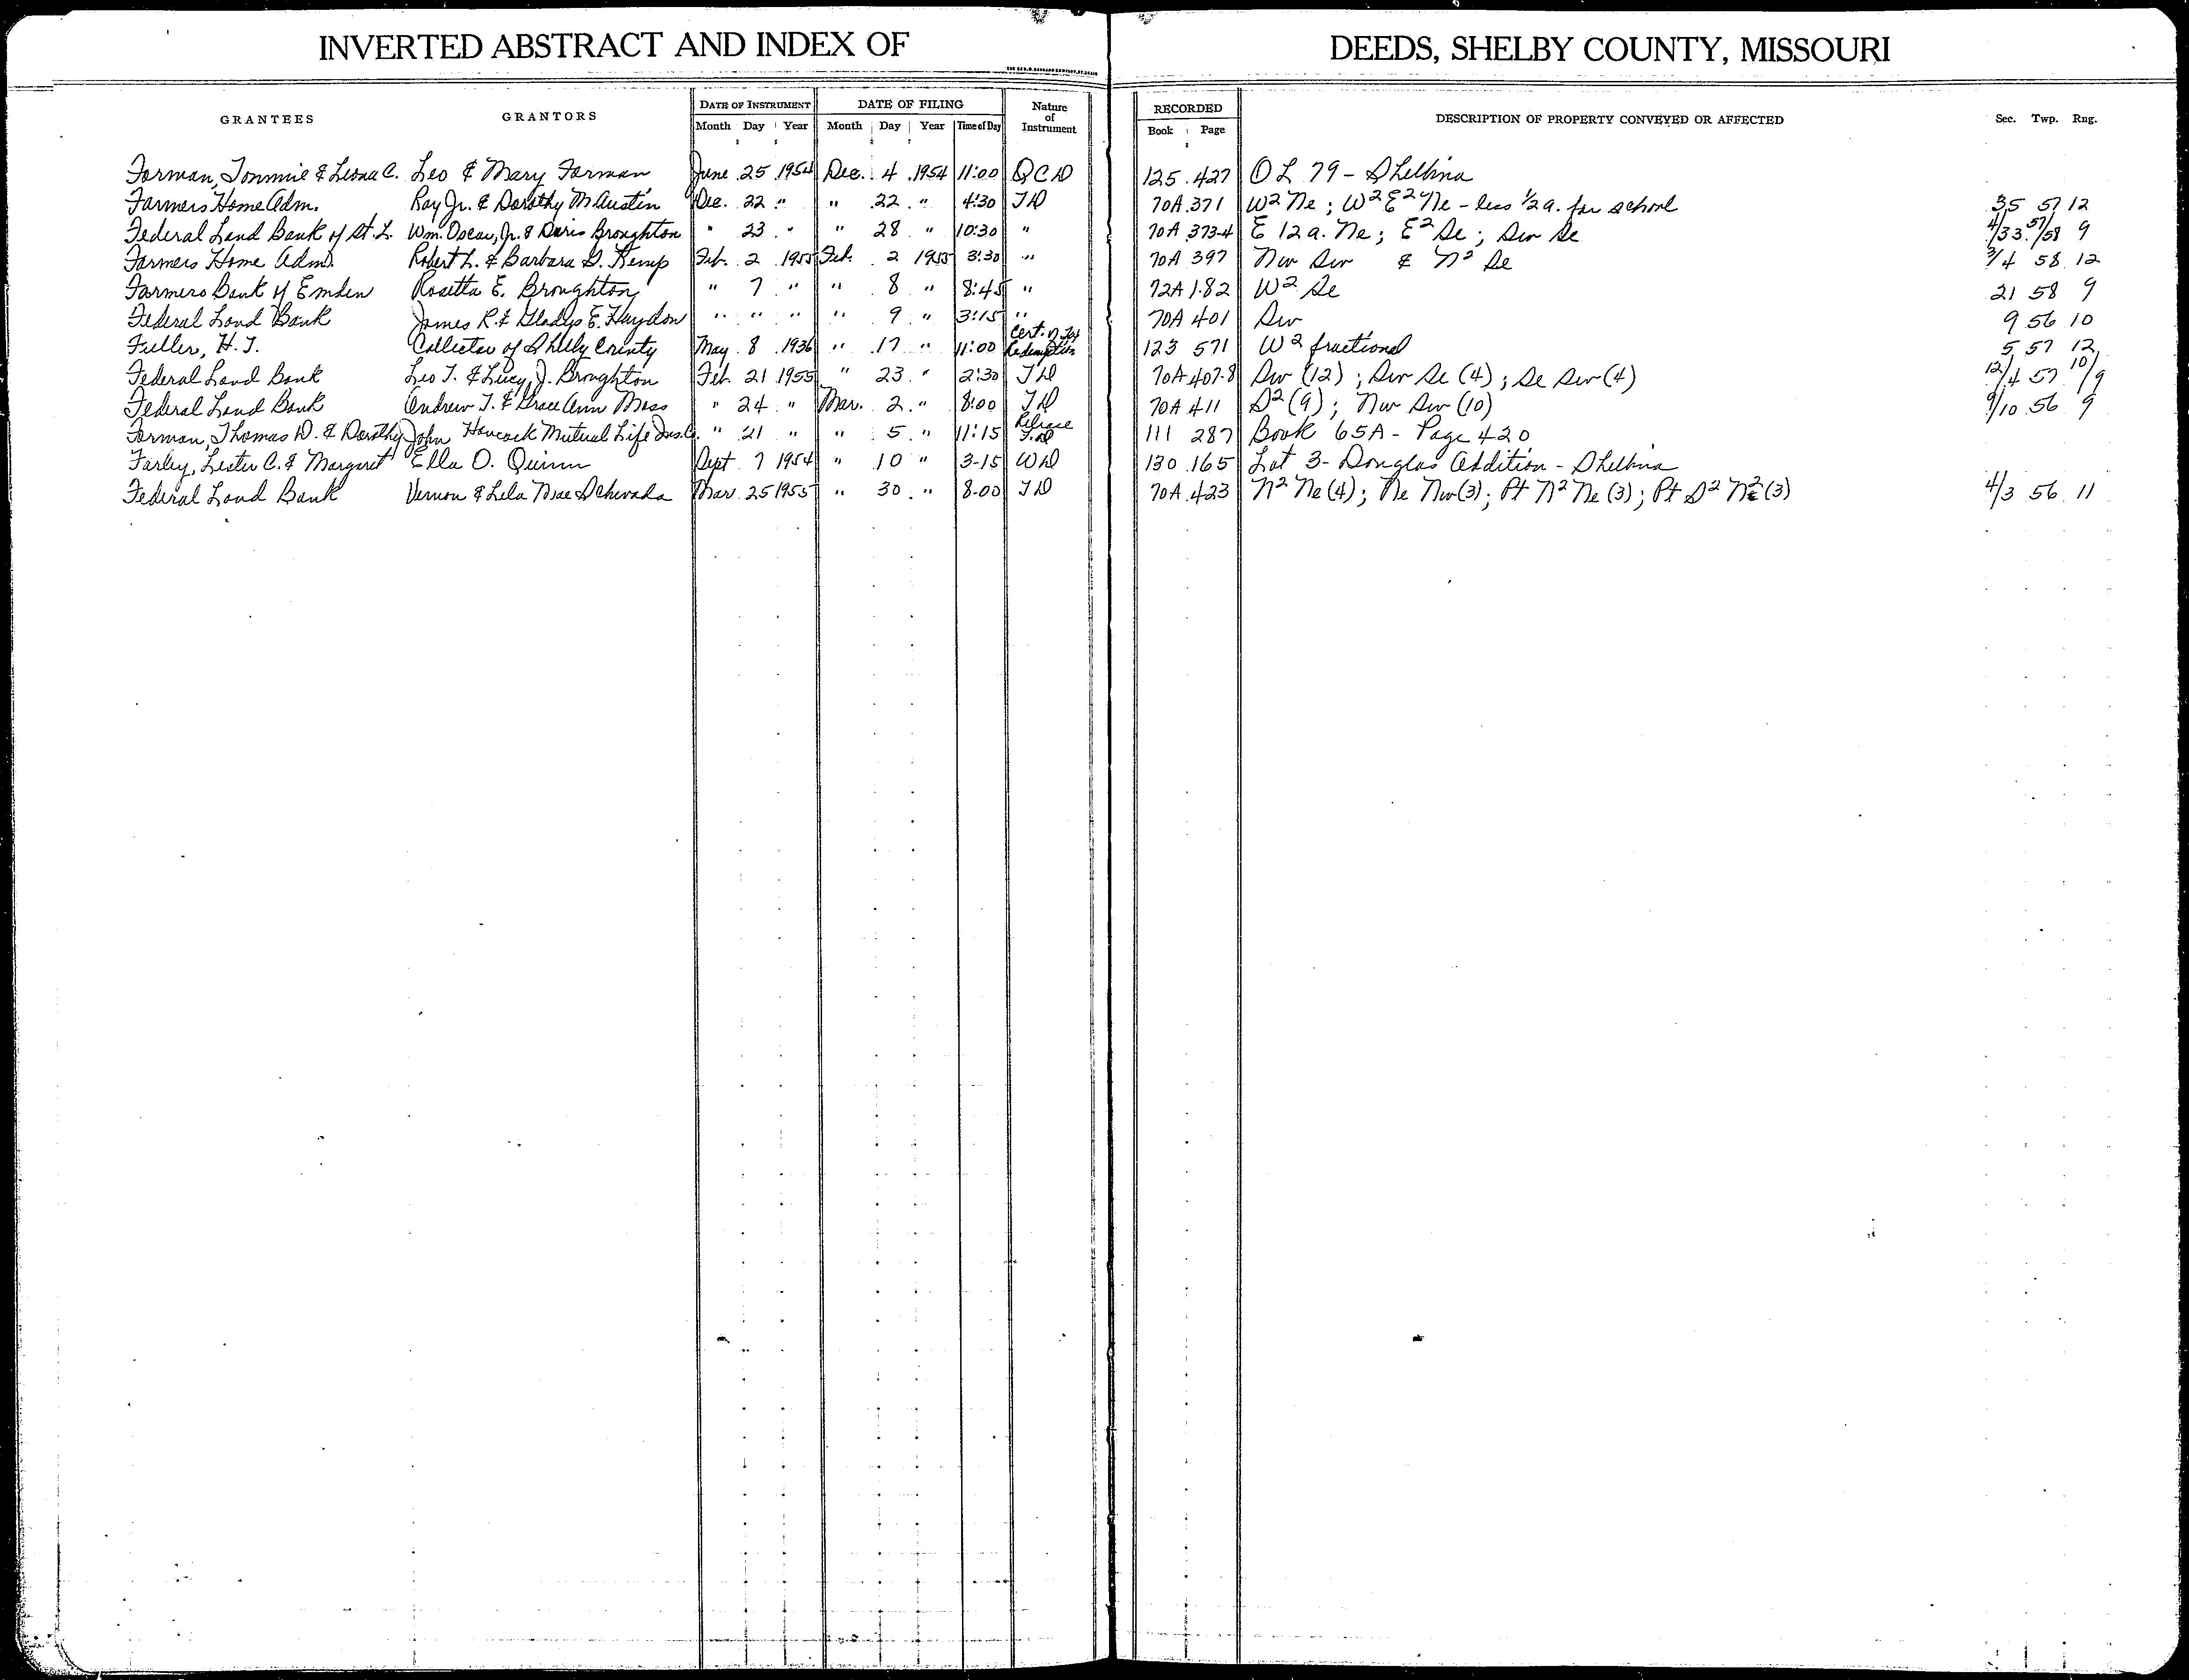 INVERTED ABSTRACT AND INDEX OF DEEDS, SHELBY COUNTY, MISSOURI
GRANTEES GRANTORS DATE OF INSTRUMENT DATE OF FILING Nature of Instrument RECORDED DESCRIPTION OF PROPERTY CONVEYED OR AFFECTED Sec. Twp. Rng.
Month Day Year Month Day Year Time of Day Book Page
Forman, Tommie & Leona C. Leo & Mary Forman June 25 1954 Dec. 4 1954 11:00 QCD 125 427 OL 79 - Shelbina
Farmers Home Adm. Ray Jr. & Dorothy M Austin Dec. 22 " " 22 " 4:30 TD 70A 371 W2 Ne; W2 E2 Ne - less 1/2 a. for school 35 57 12
Federal Land Bank of St. L. Wm. Oscar, Jr. & Doris Broughton " 23 " " 28 " 10:30 " 70A 373-4 E 12 a. Ne; E2 Se; Sw Se 4/33 57/58 9
Farmers Home Adm. Robert L. & Barbara G. Kemp Feb. 2 1955 Feb. 2 1955 3:30 " 70A 397 Nw Sw & N2 Se 3/4 58 12
Farmers Bank of Emden Rosetta E. Broughton " 7 " " 8 " 8:45 " 72A 182 W2 Se 21 58 9
Federal Land Bank James R. & Gladys E. Haydon " " " " 9 " 3:15 " 70A 401 Sw 9 56 10
Fuller, H. T. Collector of Shelby County May 8 1936 " 17 " 11:00 Cert. of Tax Redemption 123 571 W2 fractional 5 57 12
Federal Land Bank Leo T. & Lucy J. Broughton Feb. 21 1955 " 23 " 2:30 TD 70A 407-8 Sw (12); Sw Se (4); Se Sw (4) 12/4 57 10/9
Federal Land Bank Andrew T. & Grace Ann Moss " 24 " Mar. 2 " 8:00 TD 70A 411 S2 (9); Nw Sw (10) 9/10 56 9
Forman, Thomas D. & Dorothy John Hancock Mutual Life Ins. Co. " 21 " " 5 " 11:15 Release T.D. 111 287 Book 65A - Page 420
Farley, Lester C. & Margaret Ella O. Quinn Sept 7 1954 " 10 " 3-15 WD 130 165 Lot 3 - Douglas Addition - Shelbina
Federal Land Bank Vernon & Lela Mae Schwada Mar. 25 1955 " 30 " 8-00 TD 70A 423 N2 Ne (4); Ne Nw (3); Pt N2 Ne (3); Pt S2 N2 (3) 4/3 56 11